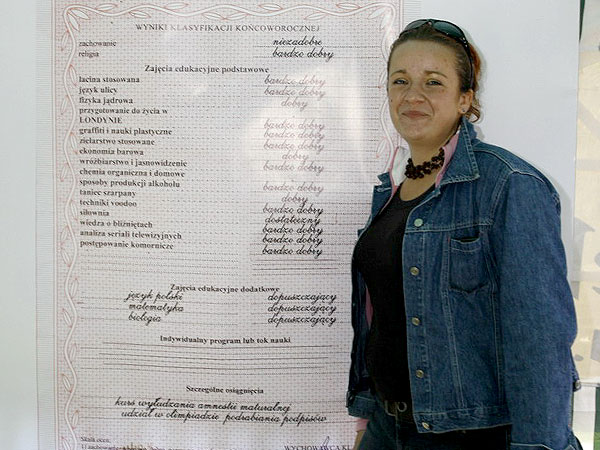 WYNIKI KLASYFIKACJI KOŃCOWOROCZNEJ
zachowanie niezadobre
religia bardzo dobry
Zajęcia edukacyjne podstawowe
łacina stosowana bardzo dobry
język ulicy bardzo dobry
fizyka jądrowa dobry
przygotowanie do życia w
LONDYNIE bardzo dobry
graffiti i nauki plastyczne bardzo dobry
zielarstwo stosowane bardzo dobry
ekonomia barowa dobry
wróżbiarstwo i jasnowidzenie bardzo dobry
chemia organiczna i domowe
sposoby produkcji alkoholu bardzo dobry
taniec szarpany dobry
techniki voodoo bardzo dobry
siłownia dostateczny
wiedza o bliźniętach bardzo dobry
analiza seriali telewizyjnych bardzo dobry
postępowanie komornicze bardzo dobry
Zajęcia edukacyjne dodatkowe
język polski dopuszczający
matematyka dopuszczający
biologia dopuszczający
Indywidualny program lub tok nauki
Szczególne osiągnięcia
kurs wyłudzania amnestii maturalnej
udział w olimpiadzie podrabiania podpisów
Skala ocen:
WYCHOWAWCA KL